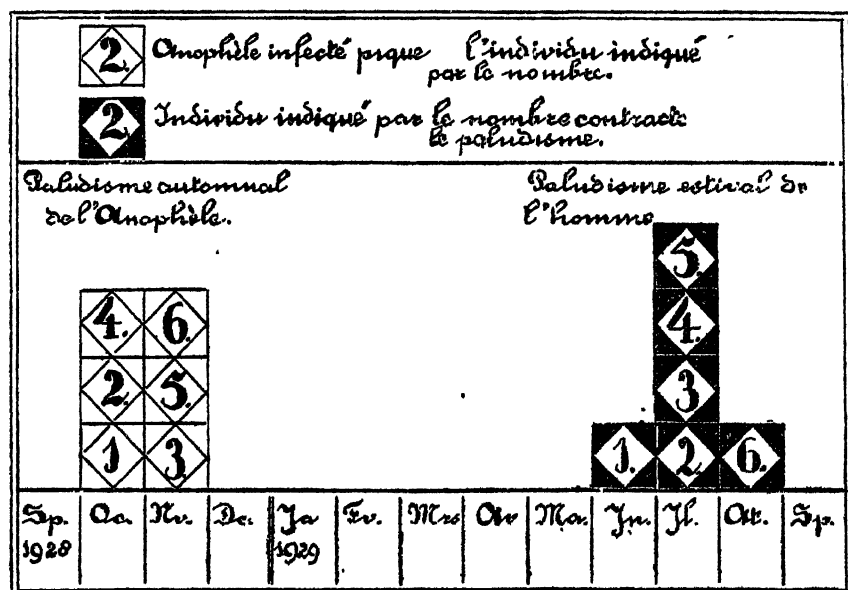 2. Anophèle infecté pique l'individu indiqué
par le nombre.
2 Individu indiqué par le nombre contracte
le paludisme.
Paludisme automnal
de l'Anophèle.
Paludisme estival de
l'homme
5.
4. 6. 4.
2. 5. 3
1 3. 1. 2. 6.
Sp. Oc. Nv. De. Ja Fv. Mrs Av Ma. Jn. Jl. Ot. Sp.
1928 1929